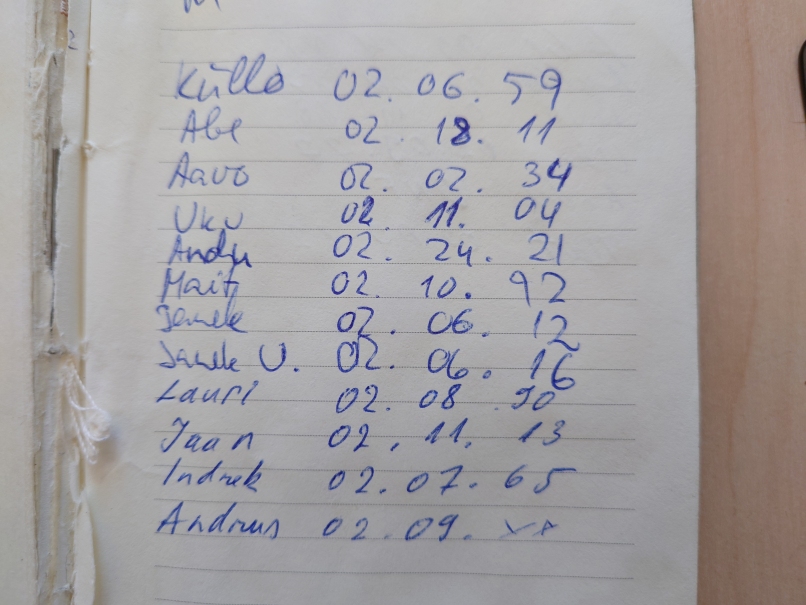 Küllo 02. 06. 59
Abe 02. 18. 11
Aavo 02. 02. 34
Uku 02. 11. 04
02. 24. 21
Mait 02. 10. 92
Janek 02. 06. 12
Janek V. 02. 06. 16
Lauri 02. 08. 90
Jaan 02. 11. 13
Indrek 02. 07. 65
Andrus 02. 09.